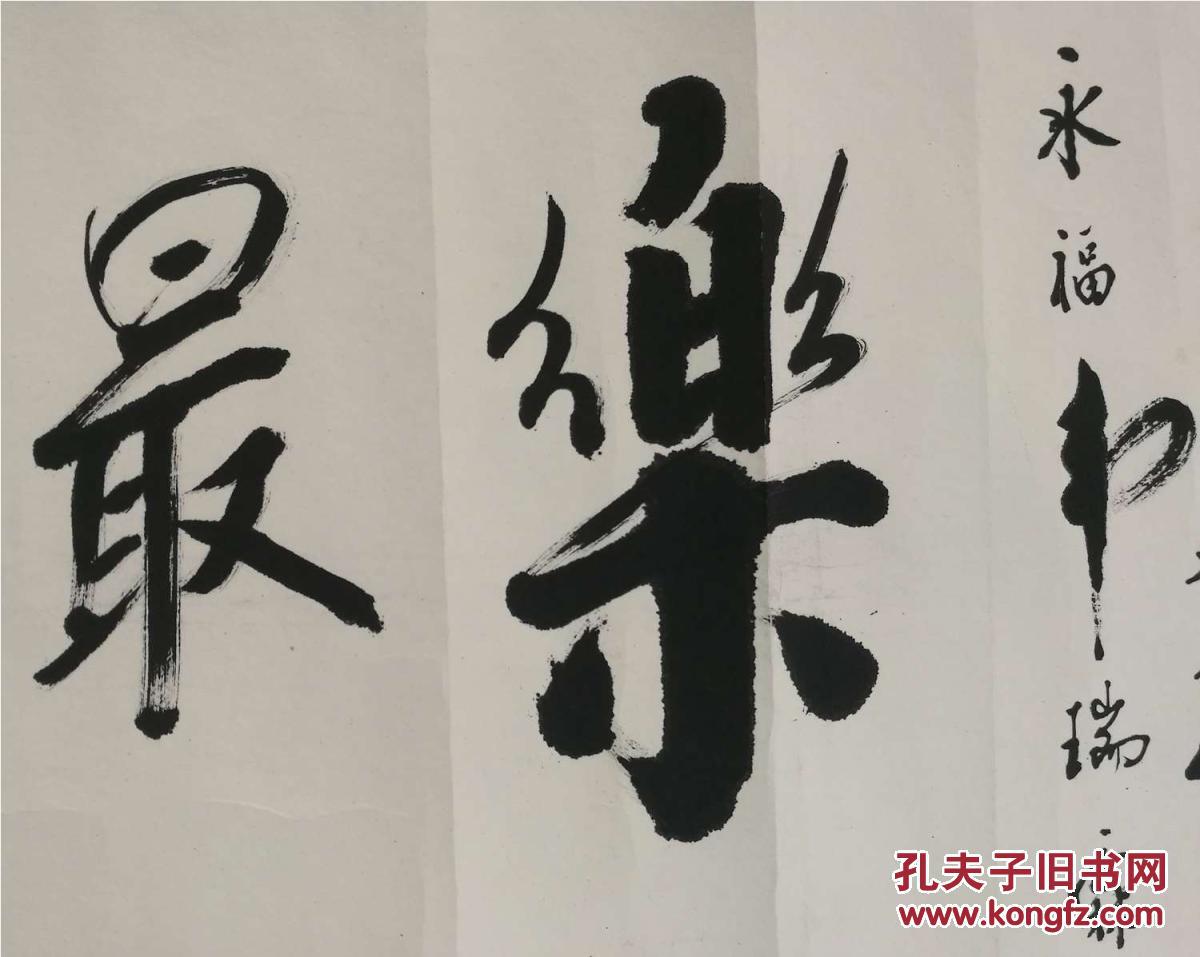 最樂
永福 瑞
孔夫子旧书网
www.kongfz.com